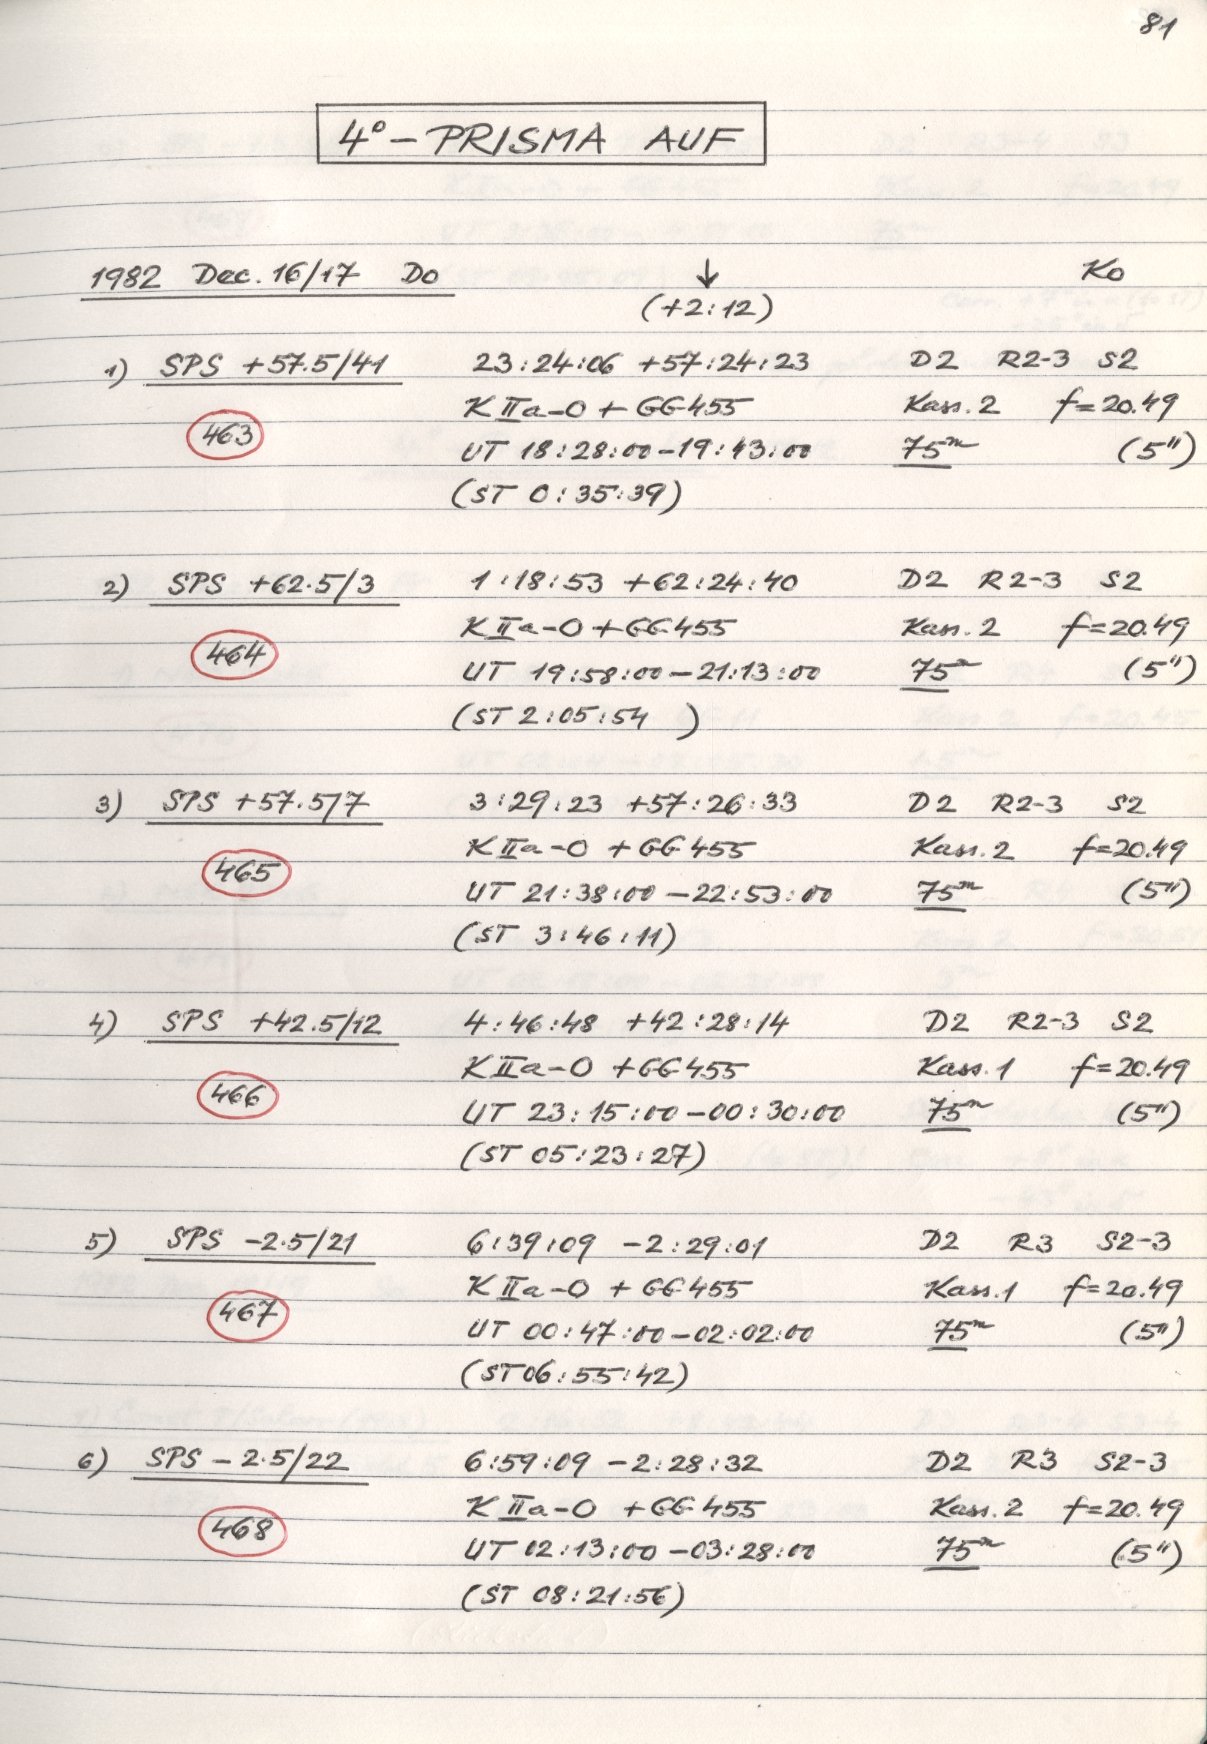 81
4° - PRISMA AUF
1982 Dec. 16/17 Do ↓ Ko
(+2:12)
1) SPS +57.5/41 23:24:06 +57:24:23 D2 R2-3 S2
K IIa-O + GG455 Kass. 2 f=20.49
463 UT 18:28:00-19:43:00 75m (5")
(ST 0:35:39)
2) SPS +62.5/3 1:18:53 +62:24:40 D2 R2-3 S2
K IIa-O + GG455 Kass. 2 f=20.49
464 UT 19:58:00-21:13:00 75m (5")
(ST 2:05:54 )
3) SPS +57.5/7 3:29:23 +57:26:33 D2 R2-3 S2
K IIa-O + GG455 Kass. 2 f=20.49
465 UT 21:38:00-22:53:00 75m (5")
(ST 3:46:11)
4) SPS +42.5/12 4:46:48 +42:28:14 D2 R2-3 S2
K IIa-O + GG455 Kass. 1 f=20.49
466 UT 23:15:00-00:30:00 75m (5")
(ST 05:23:27)
5) SPS -2.5/21 6:39:09 -2:29:01 D2 R3 S2-3
K IIa-O + GG455 Kass. 1 f=20.49
467 UT 00:47:00-02:02:00 75m (5")
(ST 06:55:42)
6) SPS -2.5/22 6:59:09 -2:28:32 D2 R3 S2-3
K IIa-O + GG455 Kass. 2 f=20.49
468 UT 02:13:00-03:28:00 75m (5")
(ST 08:21:56)